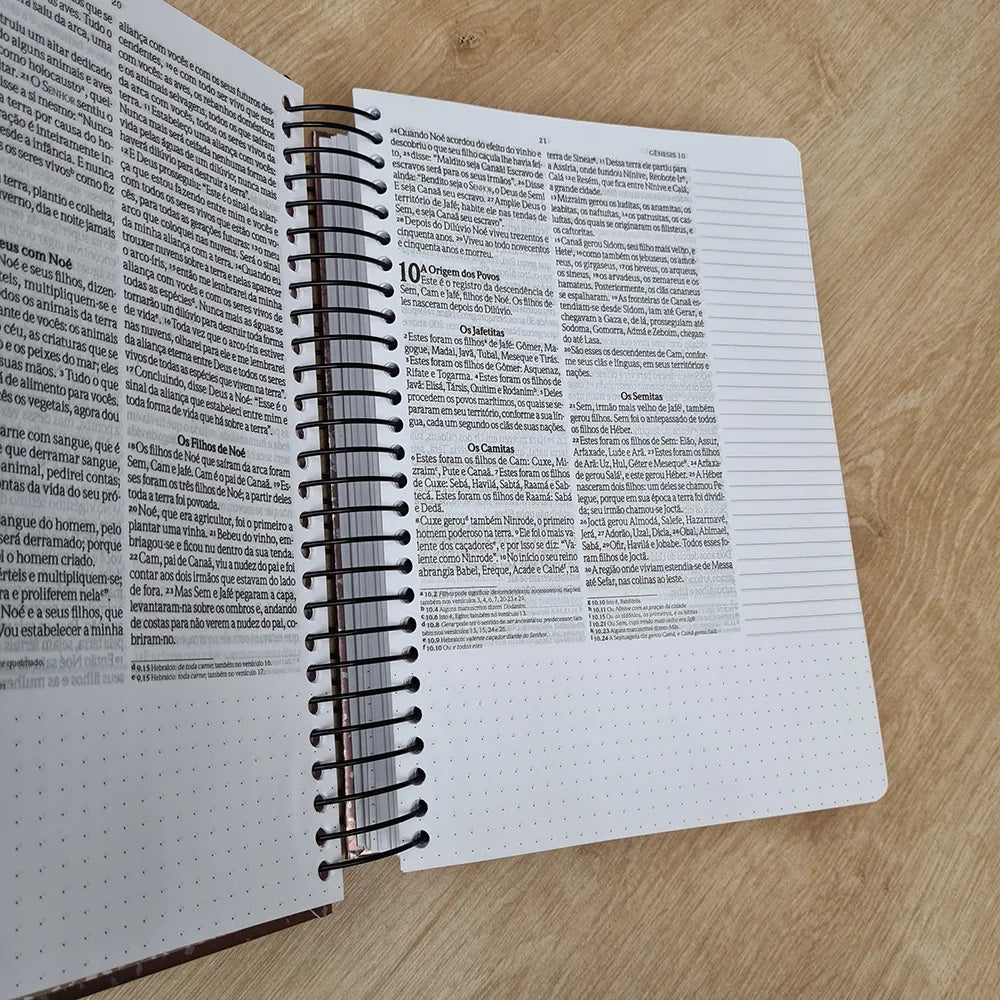 20
que se
aves. Tudo o
ra saiu da arca, uma
truiu um altar dedicado
do alguns animais e aves
como holocausto, quei-
ltar. 21 O SENHOR sentiu o
isse a si mesmo: "Nunca
a terra por causa do ho-
ração é inteiramente in-
esde a infância. E nunca
os os seres vivos como fiz
terra, plantio e colheita,
verno, dia e noite jamais
eus com Noé
Noé e seus filhos, dizen-
teis, multipliquem-se e
dos os animais da terra
ante de vocês: os animais
céu, as criaturas que se
e os peixes do mar; eles
suas mãos. 3 Tudo o que
á de alimento para vocês.
os vegetais, agora dou
arne com sangue, que é
e que derramar sangue,
animal, pedirei contas;
ontas da vida do seu pró-
sangue do homem, pelo
será derramado; porque
oi o homem criado.
érteis e multipliquem-se;
a e proliferem nela".
Noé e a seus filhos, que
Vou estabelecer a minha
queimado.
aliança com vocês e com os seus futuros des-
cendentes, 10 e com todo ser vivo que está
com vocês: as aves, os rebanhos domésticos
e os animais selvagens, todos os que saíram
da arca com vocês, todos os seres vivos da
terra. 11 Estabeleço uma aliança com vocês:
Nunca mais será ceifada nenhuma forma de
vida pelas águas de um dilúvio; nunca mais
haverá dilúvio para destruir a terra".
12 E Deus prosseguiu: "Este é o sinal da alian-
ça que estou fazendo entre mim e vocês e
com todos os seres vivos que estão com vo-
cês, para todas as gerações futuras: 13 o meu
arco que coloquei nas nuvens. Será o sinal
da minha aliança com a terra. 14 Quando eu
trouxer nuvens sobre a terra e nelas aparecer
o arco-íris, 15 então me lembrarei da minha
aliança com vocês e com os seres vivos de
todas as espécies. Nunca mais as águas se
tornarão um dilúvio para destruir toda forma
de vida. 16 Toda vez que o arco-íris estiver
nas nuvens, olharei para ele e me lembrarei
da aliança eterna entre Deus e todos os seres
vivos de todas as espécies que vivem na terra".
17 Concluindo, disse Deus a Noé: "Esse é o
sinal da aliança que estabeleci entre mim e
toda forma de vida que há sobre a terra".
Os Filhos de Noé
18 Os filhos de Noé que saíram da arca foram
Sem, Cam e Jafé. Cam é o pai de Canaã. 19 Es-
ses foram os três filhos de Noé; a partir deles
toda a terra foi povoada.
20 Noé, que era agricultor, foi o primeiro a
plantar uma vinha. 21 Bebeu do vinho, em-
briagou-se e ficou nu dentro da sua tenda.
22 Cam, pai de Canaã, viu a nudez do pai e foi
contar aos dois irmãos que estavam do lado
de fora. 23 Mas Sem e Jafé pegaram a capa,
levantaram-na sobre os ombros e, andando
de costas para não verem a nudez do pai, co-
briram-no.
d 9.15 Hebraico: de toda carne; também no versículo 16.
e 9.15 Hebraico: toda carne; também no versículo 17.
21
GÊNESIS 10
24 Quando Noé acordou do efeito do vinho e
descobriu o que seu filho caçula lhe havia fei-
to, 25 disse: "Maldito seja Canaã! Escravo de
escravos será para os seus irmãos". 26 Disse
ainda: "Bendito seja o SENHOR, o Deus de Sem!
E seja Canaã seu escravo. 27 Amplie Deus o
território de Jafé; habite ele nas tendas de
Sem, e seja Canaã seu escravo".
28 Depois do Dilúvio Noé viveu trezentos e
cinquenta anos. 29 Viveu ao todo novecentos
e cinquenta anos e morreu.
10 A Origem dos Povos
Este é o registro da descendência de
Sem, Cam e Jafé, filhos de Noé. Os filhos de-
les nasceram depois do Dilúvio.
Os Jafetitas
2 Estes foram os filhos a de Jafé: Gômer, Ma-
gogue, Madai, Javã, Tubal, Meseque e Tirás.
3 Estes foram os filhos de Gômer: Asquenaz,
Rifate e Togarma. 4 Estes foram os filhos de
Javã: Elisá, Társis, Quitim e Rodanim b. 5 Deles
procedem os povos marítimos, os quais se se-
pararam em seu território, conforme a sua lín-
gua, cada um segundo os clãs de suas nações.
Os Camitas
6 Estes foram os filhos de Cam: Cuxe, Mi-
zraim c, Pute e Canaã. 7 Estes foram os filhos
de Cuxe: Sebá, Havilá, Sabtá, Raamá e Sab-
tecá. Estes foram os filhos de Raamá: Sabá
e Dedã.
8 Cuxe gerou d também Ninrode, o primeiro
homem poderoso na terra. 9 Ele foi o mais va-
lente dos caçadores e, e por isso se diz: "Va-
lente como Ninrode". 10 No início o seu reino
abrangia Babel, Ereque, Acade e Calné f, na
a 10.2 Filhos pode significar descendentes ou sucessores ou nações;
também nos versículos 3, 4, 6, 7, 20-23 e 29.
b 10.4 Alguns manuscritos dizem Dodanim.
c 10.6 Isto é, Egito; também no versículo 13.
d 10.8 Gerar pode ter o sentido de ser ancestral ou predecessor; tam-
bém nos versículos 13, 15, 24 e 26.
e 10.9 Hebraico: valente caçador diante do Senhor.
f 10.10 Ou e todos eles
terra de Sinear g. 11 Dessa terra ele partiu para
a Assíria, onde fundou Nínive, Reobote-Ir h,
Calá 12 e Resém, que fica entre Nínive e Calá,
a grande cidade.
13 Mizraim gerou os luditas, os anamitas, os
leabitas, os naftuítas, 14 os patrusitas, os cas-
luítas, dos quais se originaram os filisteus, e
os caftoritas.
15 Canaã gerou Sidom, seu filho mais velho, e
Hete, 16 como também os jebuseus, os amor-
reus, os girgaseus, 17 os heveus, os arqueus,
os sineus, 18 os arvadeus, os zemareus e os
hamateus. Posteriormente, os clãs cananeus
se espalharam. 19 As fronteiras de Canaã es-
tendiam-se desde Sidom, iam até Gerar, e
chegavam a Gaza e, de lá, prosseguiam até
Sodoma, Gomorra, Admá e Zeboim, chegan-
do até Lasa.
20 São esses os descendentes de Cam, confor-
me seus clãs e línguas, em seus territórios e
nações.
Os Semitas
21 Sem, irmão mais velho de Jafé, também
gerou filhos. Sem foi o antepassado de todos
os filhos de Héber.
22 Estes foram os filhos de Sem: Elão, Assur,
Arfaxade, Lude e Arã. 23 Estes foram os filhos
de Arã: Uz, Hul, Géter e Meseque. 24 Arfaxa-
de gerou Salá, e este gerou Héber. 25 A Héber
nasceram dois filhos: um deles se chamou Pe-
legue, porque em sua época a terra foi dividi-
da; seu irmão chamou-se Joctã.
26 Joctã gerou Almodá, Salefe, Hazarmavé,
Jerá, 27 Adorão, Uzal, Dicla, 28 Obal, Abimael,
Sabá, 29 Ofir, Havilá e Jobabe. Todos esses fo-
ram filhos de Joctã.
30 A região onde viviam estendia-se de Messa
até Sefar, nas colinas ao leste.
g 10.10 Isto é, Babilônia.
h 10.11 Ou Nínive com as praças da cidade
10.15 Ou os sidônios, os primeiros, e os hititas
10.21 Ou Sem, cujo irmão mais velho era Jafé
10.23 Alguns manuscritos dizem Más.
10.24 A Septuaginta diz gerou Cainã, e Cainã gerou Salá.